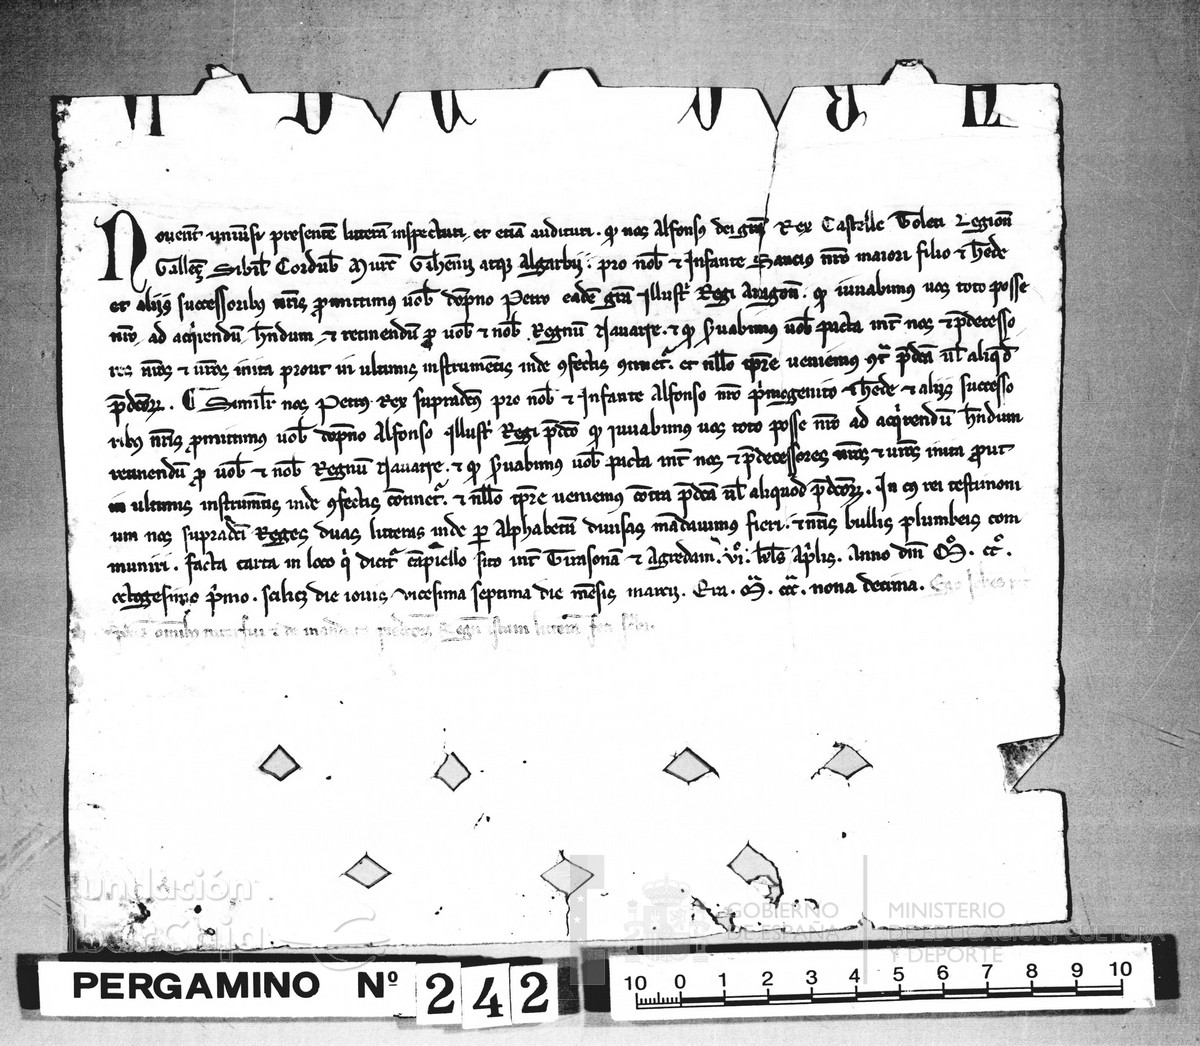 Noverint universi presentem litteram inspecturi, et etiam audituri. qd nos Alfonsus dei gra Rex Castelle Toleti Legionis
Gallecie Sibilie Cordube Murcie Gihennii atque Algarbii. pro nobis et Infante Sancius nostro maiori filio et herede
et aliis successoribus nostris promittimus vobis dompno Petro eadem gra Illustri Regi Aragonum. qd iuvabimus vos toto posse
nostro ad acquirendum habendum et retinendum pro vobis et nobis Regnum Navarre. et qd servabimus vobis pacta inter nos et predecesso
res nostros et vestros inita prout in ultimis instrumentis inde confectis continetur. et nullo tempore veniemus contra predicta vel aliquod
predictorum. Similiter nos Petrus Rex supradictus pro nobis et Infante Alfonso nostro primogenito et herede et aliis successo
ribus nostris promittimus vobis dompno Alfonso Illustri Regi predicto qd iuvabimus vos toto posse nostro ad acquirendum habendum
retinendum pro vobis et nobis Regnum Navarre. et qd servabimus vobis pacta inter nos et predecessores nostros et vestros inita prout
in ultimis instrumentis inde confectis continetur. et nullo tempore veniemus contra predicta vel aliquod predictorum. In cuius rei testimoni
um nos supradicti Reges duas litteras inde per Alphabetum divisas mandavimus fieri. et nostris bullis plumbeis com
muniri. facta carta in loco qui dicitur Campiello sito inter Tirasonam et Agredam. VI. kls Aprilis. Anno dni M. CC.
octogesimo primo. scilicet die iovis vicesima septima die mensis marcii. Era. M. CCC. nona decima.
omnibus et de mandato Regum litteram
Fundación
IberCaja
GOBIERNO
DE ESPAÑA
MINISTERIO
DE EDUCACIÓN, CULTURA
Y DEPORTE
PERGAMINO Nº 242
10 0 1 2 3 4 5 6 7 8 9 10